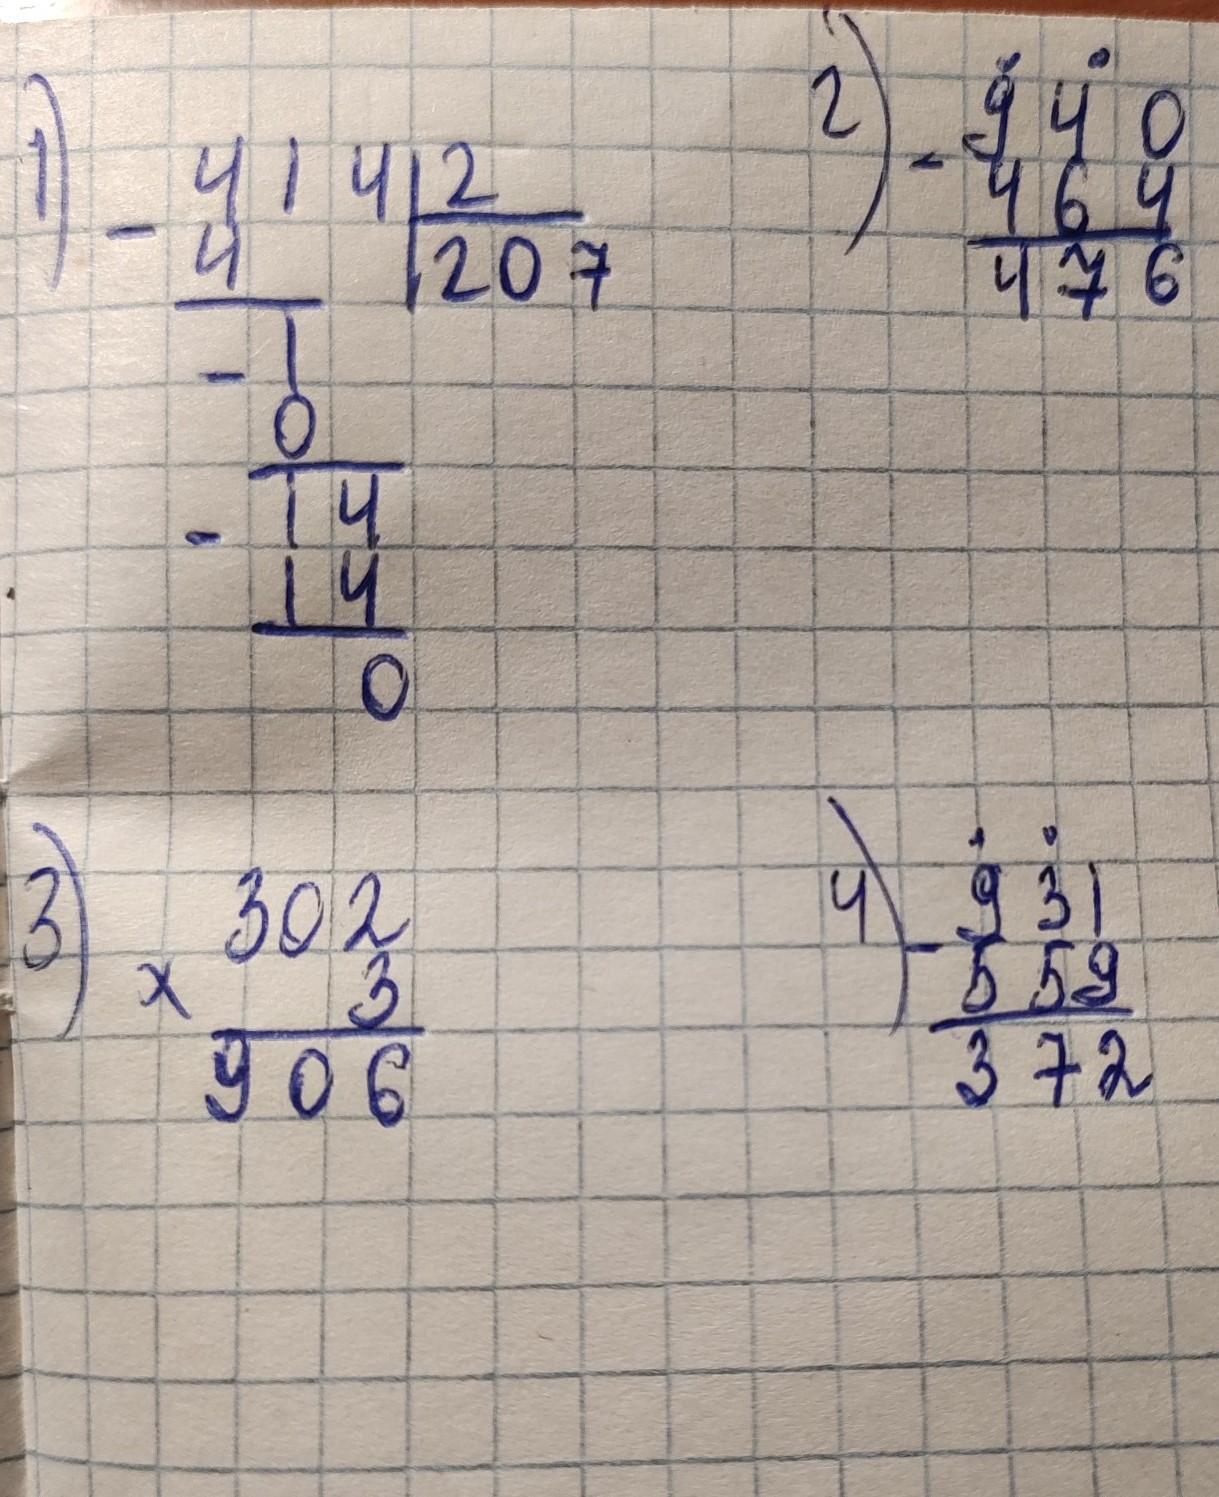 1) - 414 | 2
4 | 207
- 1
0
- 14
14
0
2) - 940
464
476
3) 302
x 3
906
4) - 931
559
372